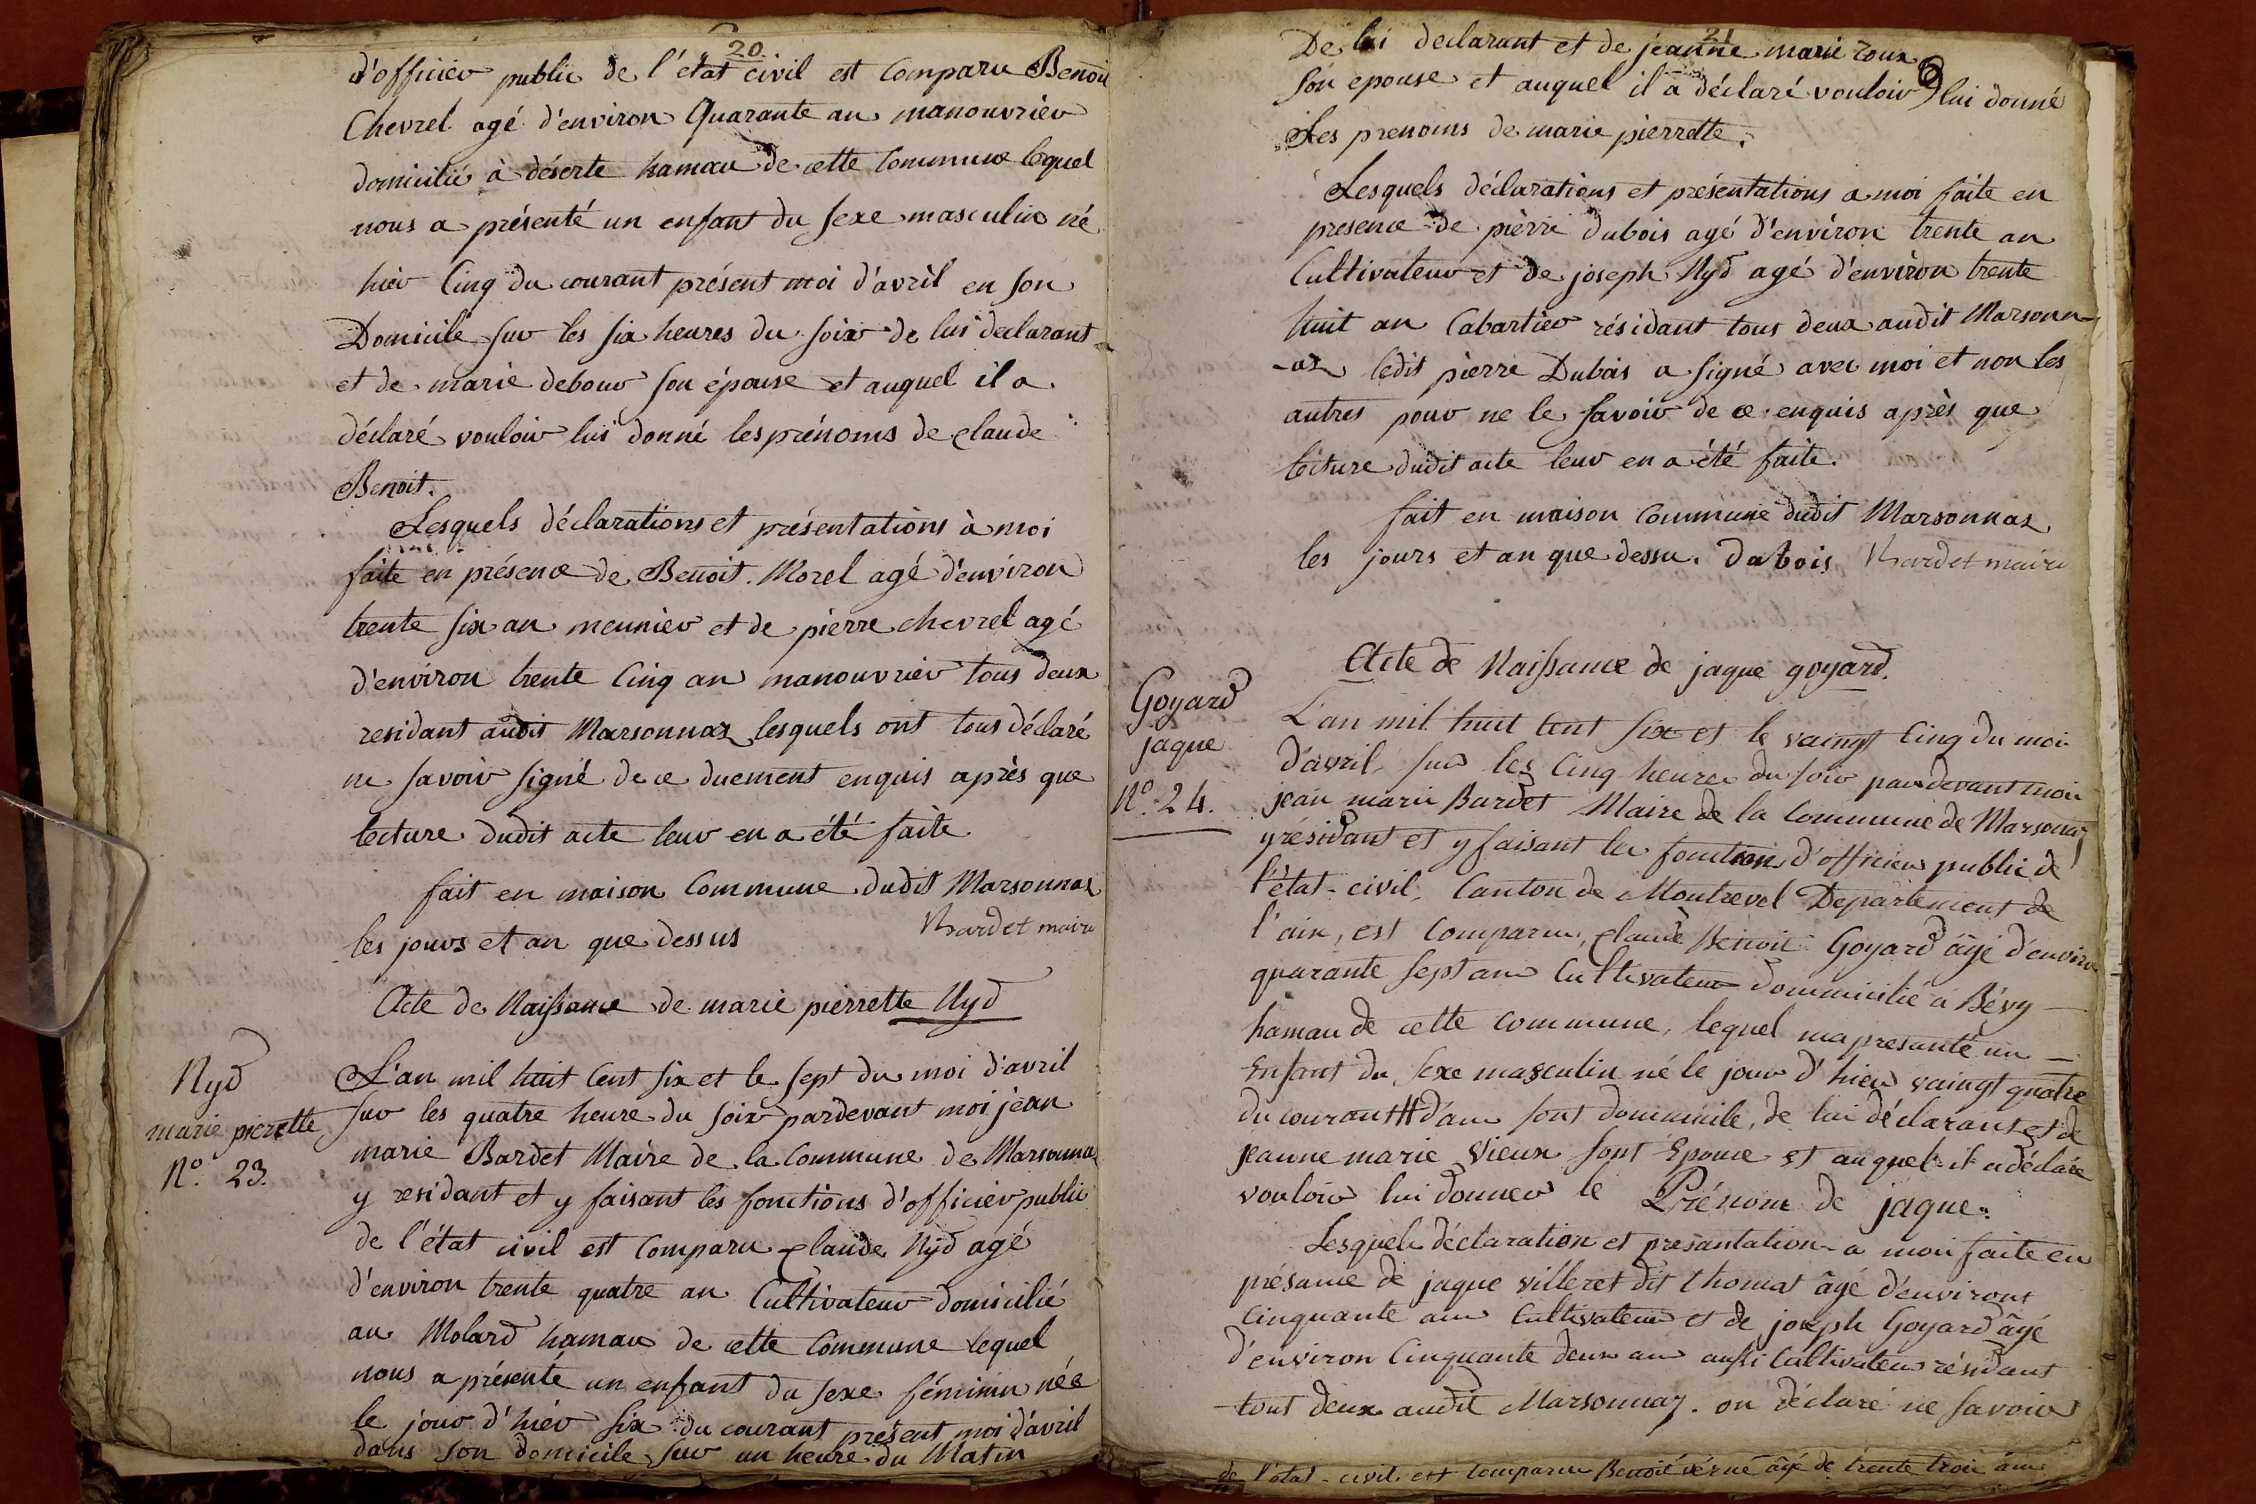 20.
d'officier public de l'état civil est Comparu Benoit
Chevrel agé d'environ Quarante an manouvrier
domicilié à déserte hamau de cette Commune lequel
nous a présenté un enfant du sexe masculin né
hier Cinq du courant présent moi d'avril en son
Domicile sur les six heures du soir de lui declarant
et de marie debour son épouse et auquel il a
déclaré vouloir lui donné les prénoms de Claude
Benoit.
Lesquels déclarations et présentations à moi
faite en présence de Benoit Morel agé d'environ
trente six an meunier et de pierre chevrel agé
d'environ trente Cinq an manouvrier tous deux
residant audit Marsonnaz lesquels ont tous déclaré
ne savoir signé de ce duement enquis après que
lecture dudit acte leur en a été faite
fait en maison Commune dudit Marsonnaz
les jours et an que dessus Bardet maire
Acte de Naissance de marie pierrette Nyd
Nyd
marie pierrette
N.º 23.
L'an mil huit Cent six et le sept du moi d'avril
sur les quatre heure du soir pardevant moi jean
marie Bardet Maire de la Commune de Marsonnaz
y residant et y faisant les fonctions d'officier public
de l'état civil est Comparu Claude Nyd agé
d'environ trente quatre an Cultivateur domicilié
au Molard hamau de cette Commune lequel
nous a présenté un enfant du sexe féminin née
le jour d'hiér six du courant présent moi d'avril
dans son domicile sur un heure du Matin
21
De lui declarant et de jeanne marie roux
son epouse et auquel il a déclaré vouloir lui donné
Les prenoms de marie pierrette.
Lesquels déclarations et présentations a moi faite en
presence de pièrre dubois agé d'environ trente an
Cultivateur et de joseph Nyd agé d'environ trente
huit an Cabartier résidant tous deux audit Marsonn-
-az ledit pièrre Dubois a signé avec moi et non les
autres pour ne le savoir de ce enquis après que
lecture dudit acte leur en a été faite.
fait en maison Commune dudit Marsonnaz
les jours et an que dessu. Dubois Bardet maire
Acte de Naissance de jaque goyard.
Goyard
jaque
N.º 24.
L'an mil huit Cent six et le vaingt Cinq du moi
d'avril sur les Cinq heure du soir pardevant moi
jean marie Bardet Maire de la Commune de Marsonaz
y résidant et y faisant les fonctions d'officier public de
l'état-civil, Canton de Montrevel Departement de
l'ain, est Comparu, Claude Benoit Goyard âgé d'environ
quarante sept an Cultivateur dommicilié a Bévy
hamau de cette commune, lequel ma presanté un
Enfant du sexe masculin né le jour d'hier vaingt quatre
du courant # d'an sont dommicile, de lui déclarant et de
jeanne marie Vieux sont Epouse et auquel il a déclaré
vouloir lui donner le Prénom de jaque.
Lesquels déclaration et presantation a moi faite en
présance de jaque villeret dit thomat âgé d'environt
Cinquante an Cultivateur et de joseph Goyard âgé
d'environ Cinquante deux an aussi Cultivateur résidant
tout deux audit Marsonnaz. on déclaré ne savoir
de l'état-civil, est Comparu Benoit âgé de trente troix ans